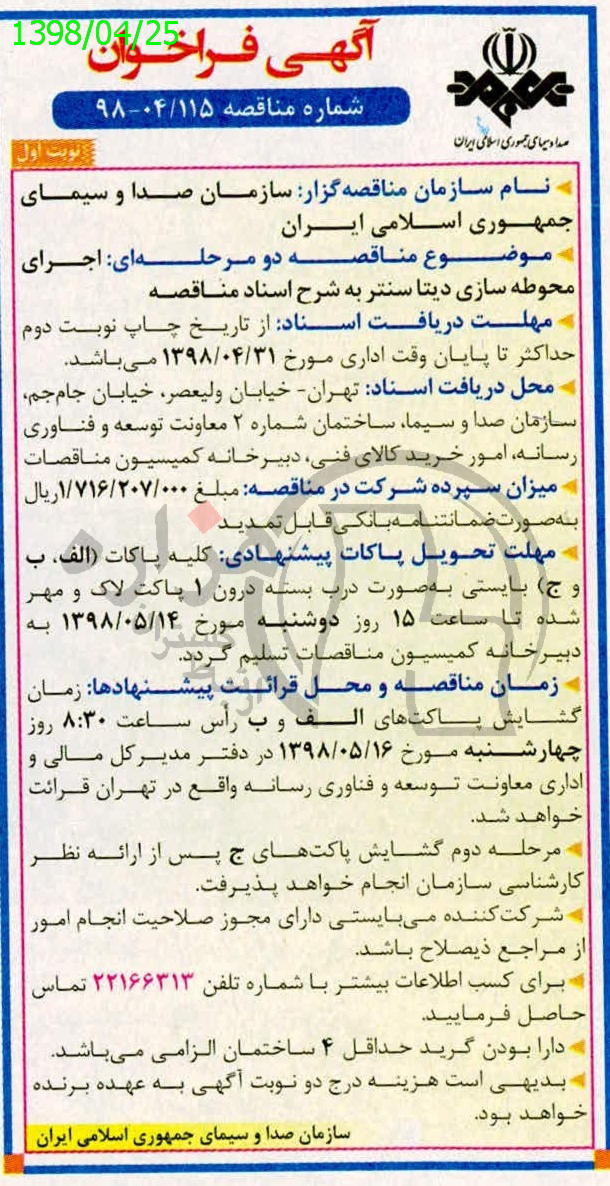 1398/04/25
آگهی فراخوان
شماره مناقصه ۹۸-۰۴/۱۱۵
صدا و سیمای جمهوری اسلامی ایران
نوبت اول
نام سازمان مناقصه‌گزار: سازمان صدا و سیمای
جمهوری اسلامی ایران
موضوع مناقصه دو مرحله‌ای: اجرای
محوطه سازی دیتا سنتر به شرح اسناد مناقصه
مهلت دریافت اسناد: از تاریخ چاپ نوبت دوم
حداکثر تا پایان وقت اداری مورخ ۱۳۹۸/۰۴/۳۱ می‌باشد.
محل دریافت اسناد: تهران- خیابان ولیعصر، خیابان جام‌جم،
سازمان صدا و سیما، ساختمان شماره ۲ معاونت توسعه و فناوری
رسانه، امور خرید کالای فنی، دبیرخانه کمیسیون مناقصات
میزان سپرده شرکت در مناقصه: مبلغ ۱/۷۱۶/۲۰۷/۰۰۰ریال
به‌صورت ضمانتنامه بانکی قابل تمدید
مهلت تحویل پاکات پیشنهادی: کلیه پاکات (الف، ب
و ج) بایستی به‌صورت درب بسته درون ۱ پاکت لاک و مهر
شده تا ساعت ۱۵ روز دوشنبه مورخ ۱۳۹۸/۰۵/۱۴ به
دبیرخانه کمیسیون مناقصات تسلیم گردد.
زمان مناقصه و محل قرائت پیشنهادها: زمان
گشایش پاکت‌های الف و ب رأس ساعت ۸:۳۰ روز
چهارشنبه مورخ ۱۳۹۸/۰۵/۱۶ در دفتر مدیرکل مالی و
اداری معاونت توسعه و فناوری رسانه واقع در تهران قرائت
خواهد شد.
مرحله دوم گشایش پاکت‌های ج پس از ارائه نظر
کارشناسی سازمان انجام خواهد پذیرفت.
شرکت‌کننده می‌بایستی دارای مجوز صلاحیت انجام امور
از مراجع ذیصلاح باشد.
برای کسب اطلاعات بیشتر با شماره تلفن ۲۲۱۶۶۳۱۳ تماس
حاصل فرمایید.
دارا بودن گرید حداقل ۴ ساختمان الزامی می‌باشد.
بدیهی است هزینه درج دو نوبت آگهی به عهده برنده
خواهد بود.
سازمان صدا و سیمای جمهوری اسلامی ایران